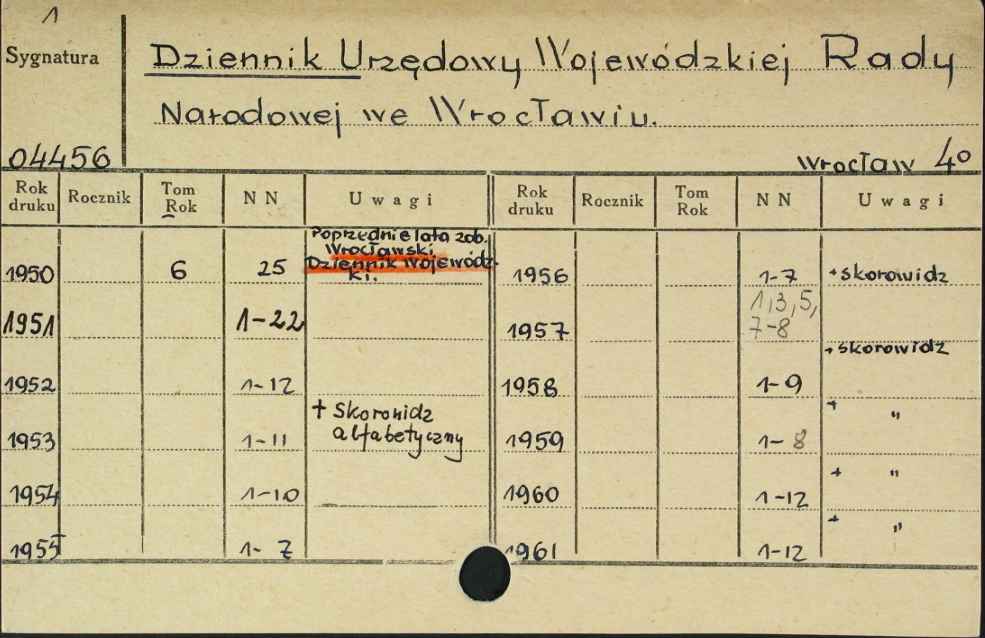 1
Sygnatura
Dziennik Urzędowy Wojewódzkiej Rady
Narodowej we Wrocławiu.
04456
Wrocław 4o
Rok druku Rocznik Tom Rok NN Uwagi Rok druku Rocznik Tom Rok NN Uwagi
Poprzednie lata zob.
Wrocławski
Dziennik Wojewódz-
ki.
1950 6 25 1956 1-7 + skorowidz
1951 1-22 1957 1,3,5,
7-8
+ skorowidz
1952 1-12 1958 1-9
+ Skorowidz + "
alfabetyczny
1953 1-11 1959 1-8
+ "
1954 1-10 1960 1-12
+ "
1955 1-7 1961 1-12